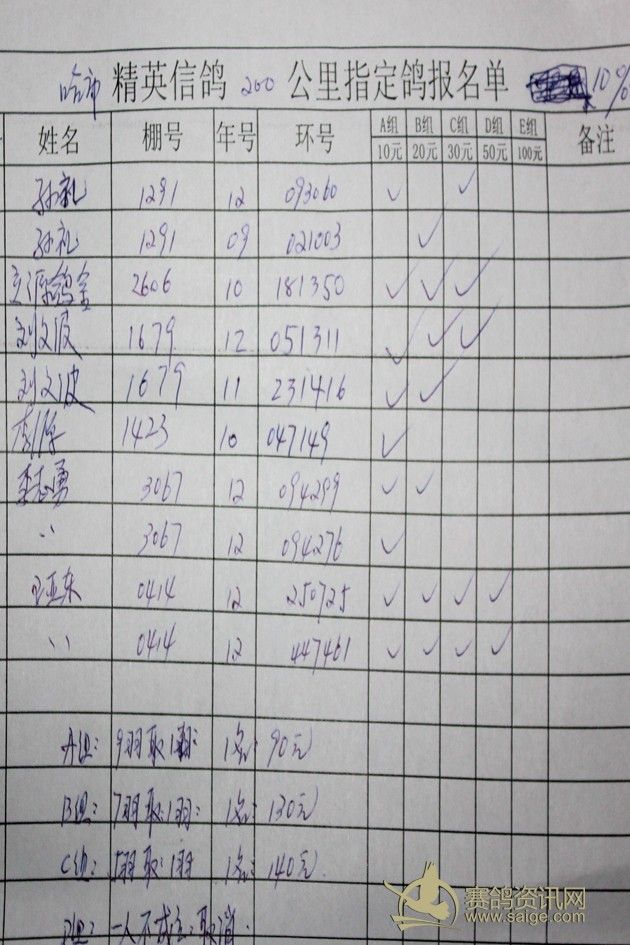 哈市 精英信鸽 200 公里指定鸽报名单 10%
姓名 棚号 年号 环号 A组 B组 C组 D组 E组 备注
10元 20元 30元 50元 100元
孙礼 1291 12 093060 ✓ ✓
孙礼 1291 09 021003 ✓
2606 10 181350 ✓ ✓ ✓
刘文波 1679 12 051311 ✓ ✓ ✓
刘文波 1679 11 231416 ✓ ✓
1423 10 047149 ✓
李志勇 3067 12 094299 ✓ ✓
〃 3067 12 094276 ✓
王亚东 0414 12 250725 ✓ ✓ ✓ ✓
〃 0414 12 447461 ✓ ✓ ✓ ✓
A组: 9羽取1羽: 1名: 90元
B组: 7羽取1羽: 1名: 130元
C组: 5羽取1羽 1名: 140元.
D组: 一人不成立: 取消.
赛鸽资讯网
www.saige.com